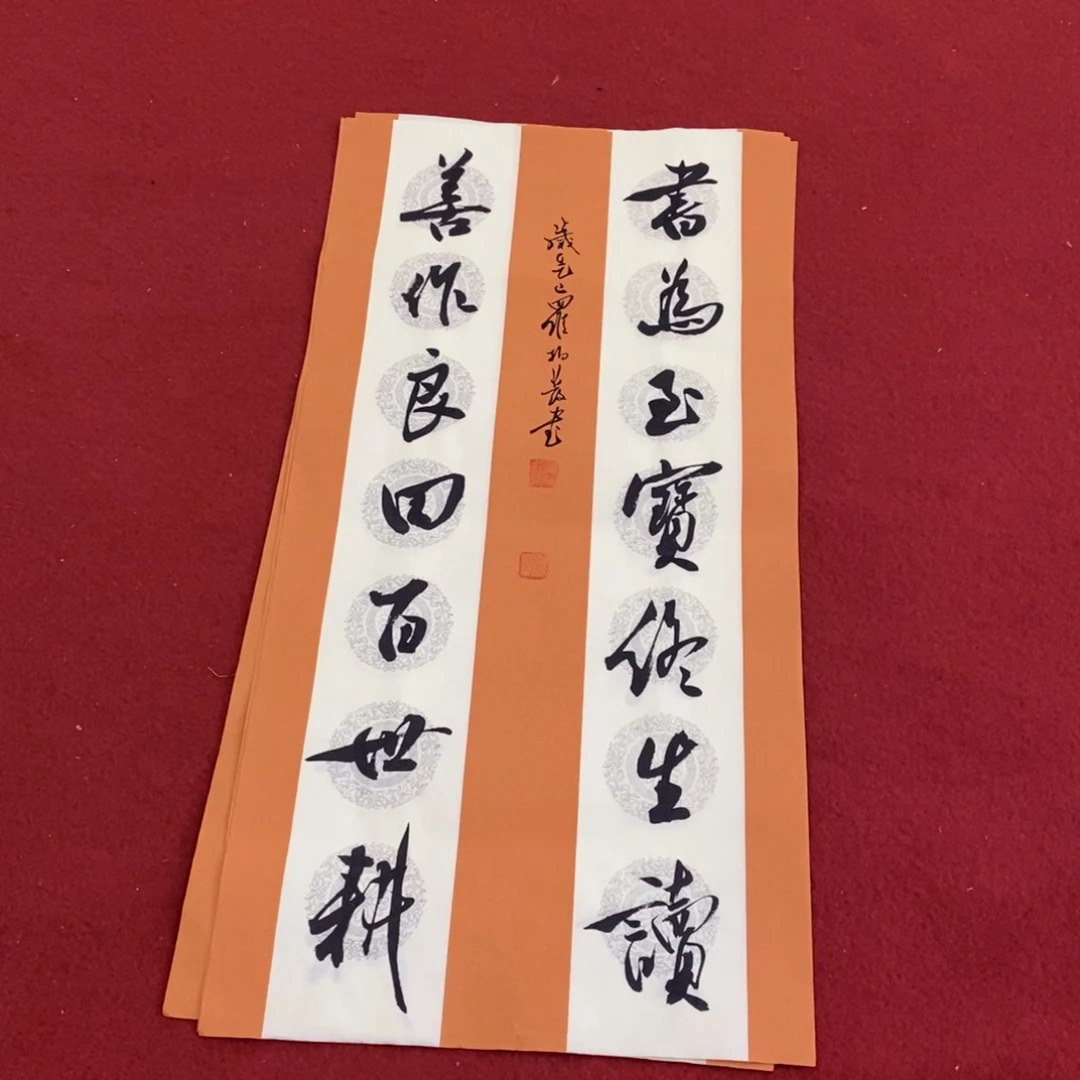 書為至寶終生讀
善作良田百世耕
歲乙巳羅書